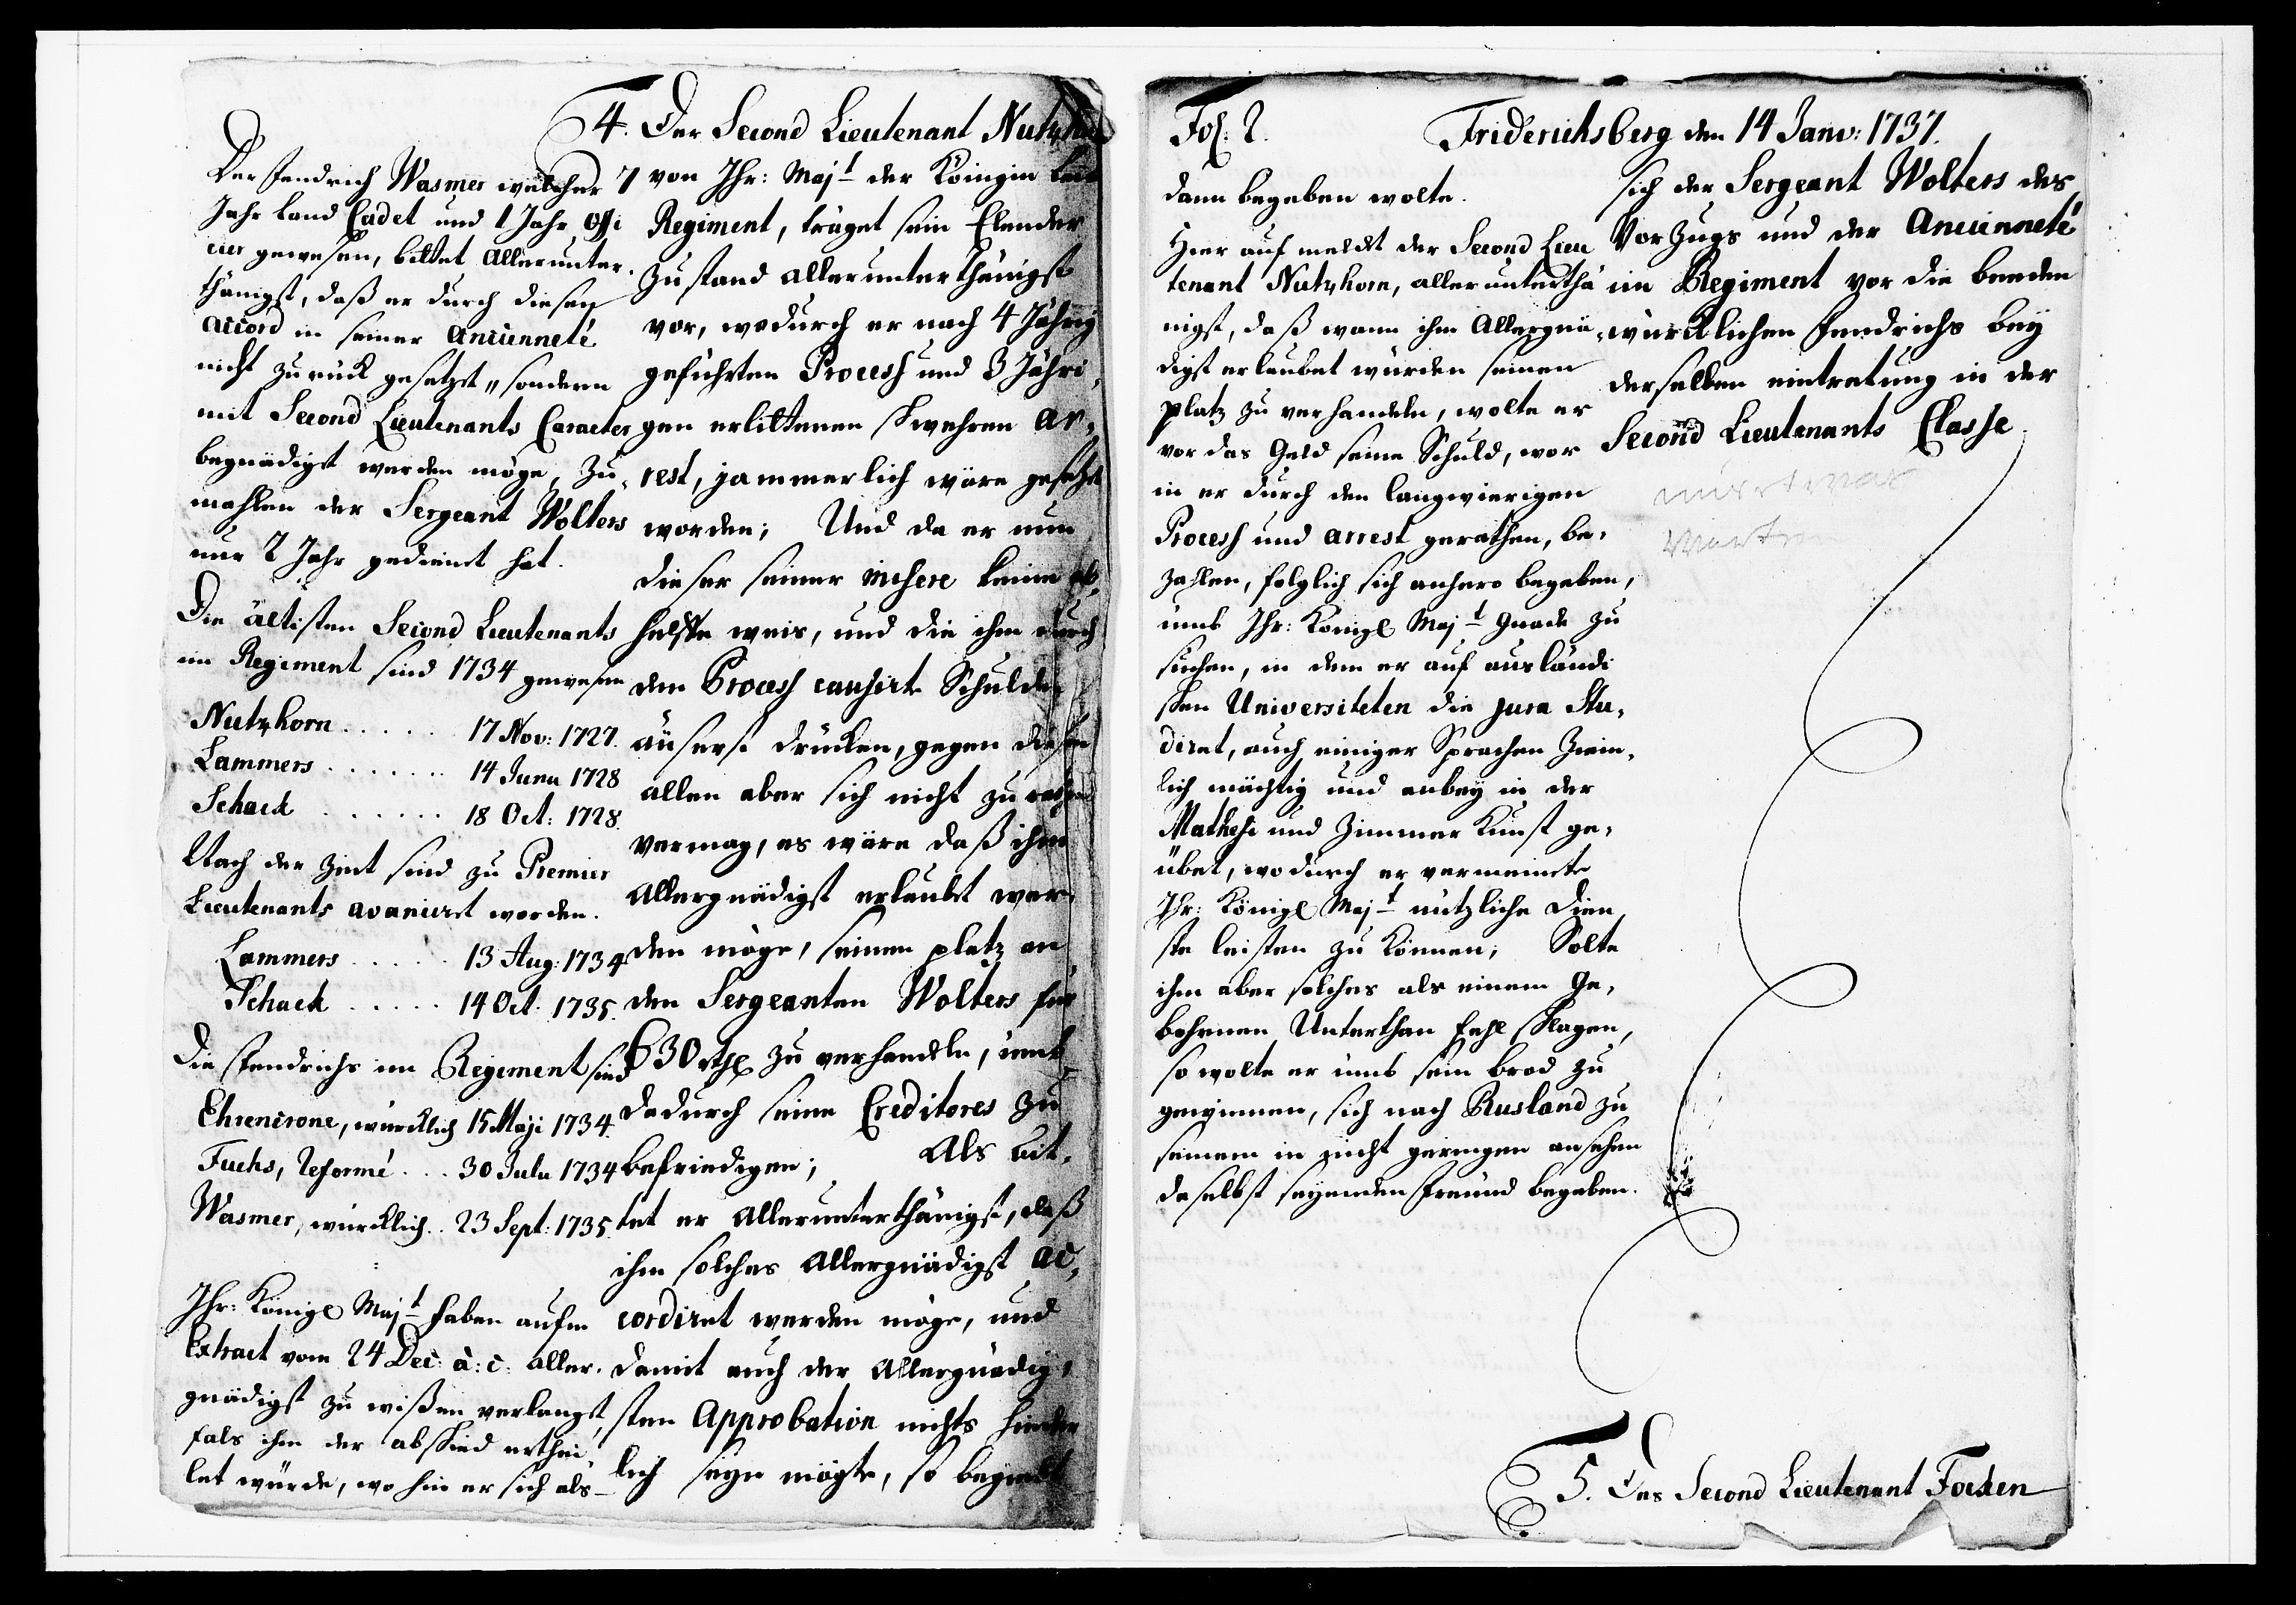 Der Fendrich Wasmer welcher 7
Jahr Land Cadet und 1 Jahr Offi
cier gewesen, bittet Allerunter-
thänigst, daß er durch diesen
accord in seiner Ancienneté
nicht zurück gesetzet, sondern
mit Second Lieutenants Caracter
begnadigt werden möge, Zu-
mahlen der Sergeant Wolters
nur 2 Jahr gedienet hat.
Die ältisten Second Lieutenants
im Regiment sind 1734 gewesen
Nutzhorn . . . . . 17 Nov: 1727.
Lammers . . . . . . 14 Junii 1728
Schack . . . . . . 18 Oct: 1728.
Nach der Zeit sind zu Premier
Lieutenants avanciret worden.
Lammers . . . . . 13 Aug: 1734
Schack . . . . . 14 Oct. 1735.
Die Fendrichs im Regiment sind
Ehrencrone, würcklich 15 Maji 1734.
Fuchs, Reformé . . . 30 Julii 1734
Wasmer, würcklich . . 23 Sept: 1735.
Ihr: Königl Majt haben aufm
Extract vom 24 Dec: a: c: aller-
gnädigst zu wißen verlangt,
fals ihm der abschied erthei-
let würde, wo hin er sich als-
4. Der Second Lieutenant Nutzhorn
von Ihr: Majt der Königin Leib
Regiment, träget sein Elender
Zustand allerunterthänigst
vor, wodurch er nach 4 Jährig
geführten Process und 3 Jähri-
gen erlittenen schwehren Ar-
rest, jammerlich wäre gesetzt
worden; Und da er nun
dieser seiner misere keine ab-
helffe weis, und die ihm durch
den Process causirte Schulden
äuserst drücken, gegen diesem
allen aber sich nicht zu rathen
vermag, es wäre daß ihm
Allergnädigst erlaubt wer-
den möge, seinen platz an
den Sergeanten Wolters für
630 rthl zu verhandeln, umb
dadurch seine Creditores zu
befriedigen; Als bit-
tet er Allerunterthänigst, daß
ihm solches Allergnädigst ac-
cordiret werden möge, und
damit auch der Allergnädig-
sten Approbation nichts hinder
lich seyn mögte, so begiebt
Fol: 2. Friderichsberg den 14 Janv: 1737.
dann begeben wolte.
Hier auf meldet der Second Lieu
tenant Nutzhorn, allerunterthä
nigst, daß wann ihm Allergnä-
digst erlaubet würden seinen
platz zu verhandeln, wolte er
vor das Geld seine Schuld, wor
in er durch den langwierigen
Process und arrest gerathen, be-
zahlen, folglich sich anhero begeben,
umb Ihr: Königl Majt Gnade zu
suchen, in dem er auf ausländi
schen Universiteten die jura stu-
diret, auch einiger Sprachen Ziem-
lich mächtig und anbey in der
Mathesi und Zimmer Kunst ge-
übet, wodurch er vermeinete
Ihr: Königl Majt nützliche Dien-
ste leisten zu können; Solte
ihm aber solches als einem Ge-
bohrnen Unterthan fehl schlagen,
so wolte er umb sein brod zu
gewinnen, sich nach Rusland zu
seinem in nicht geringen ansehen
daselbst seyenden Freund begeben.
sich der Sergeant Wolters des
Vorzugs und der Ancienneté
im Regiment vor die beeden
würcklichen Fendrichs bey
derselben eintretung in der
Second Lieutenants Classe.
5. Der Second Lieutenant Focken